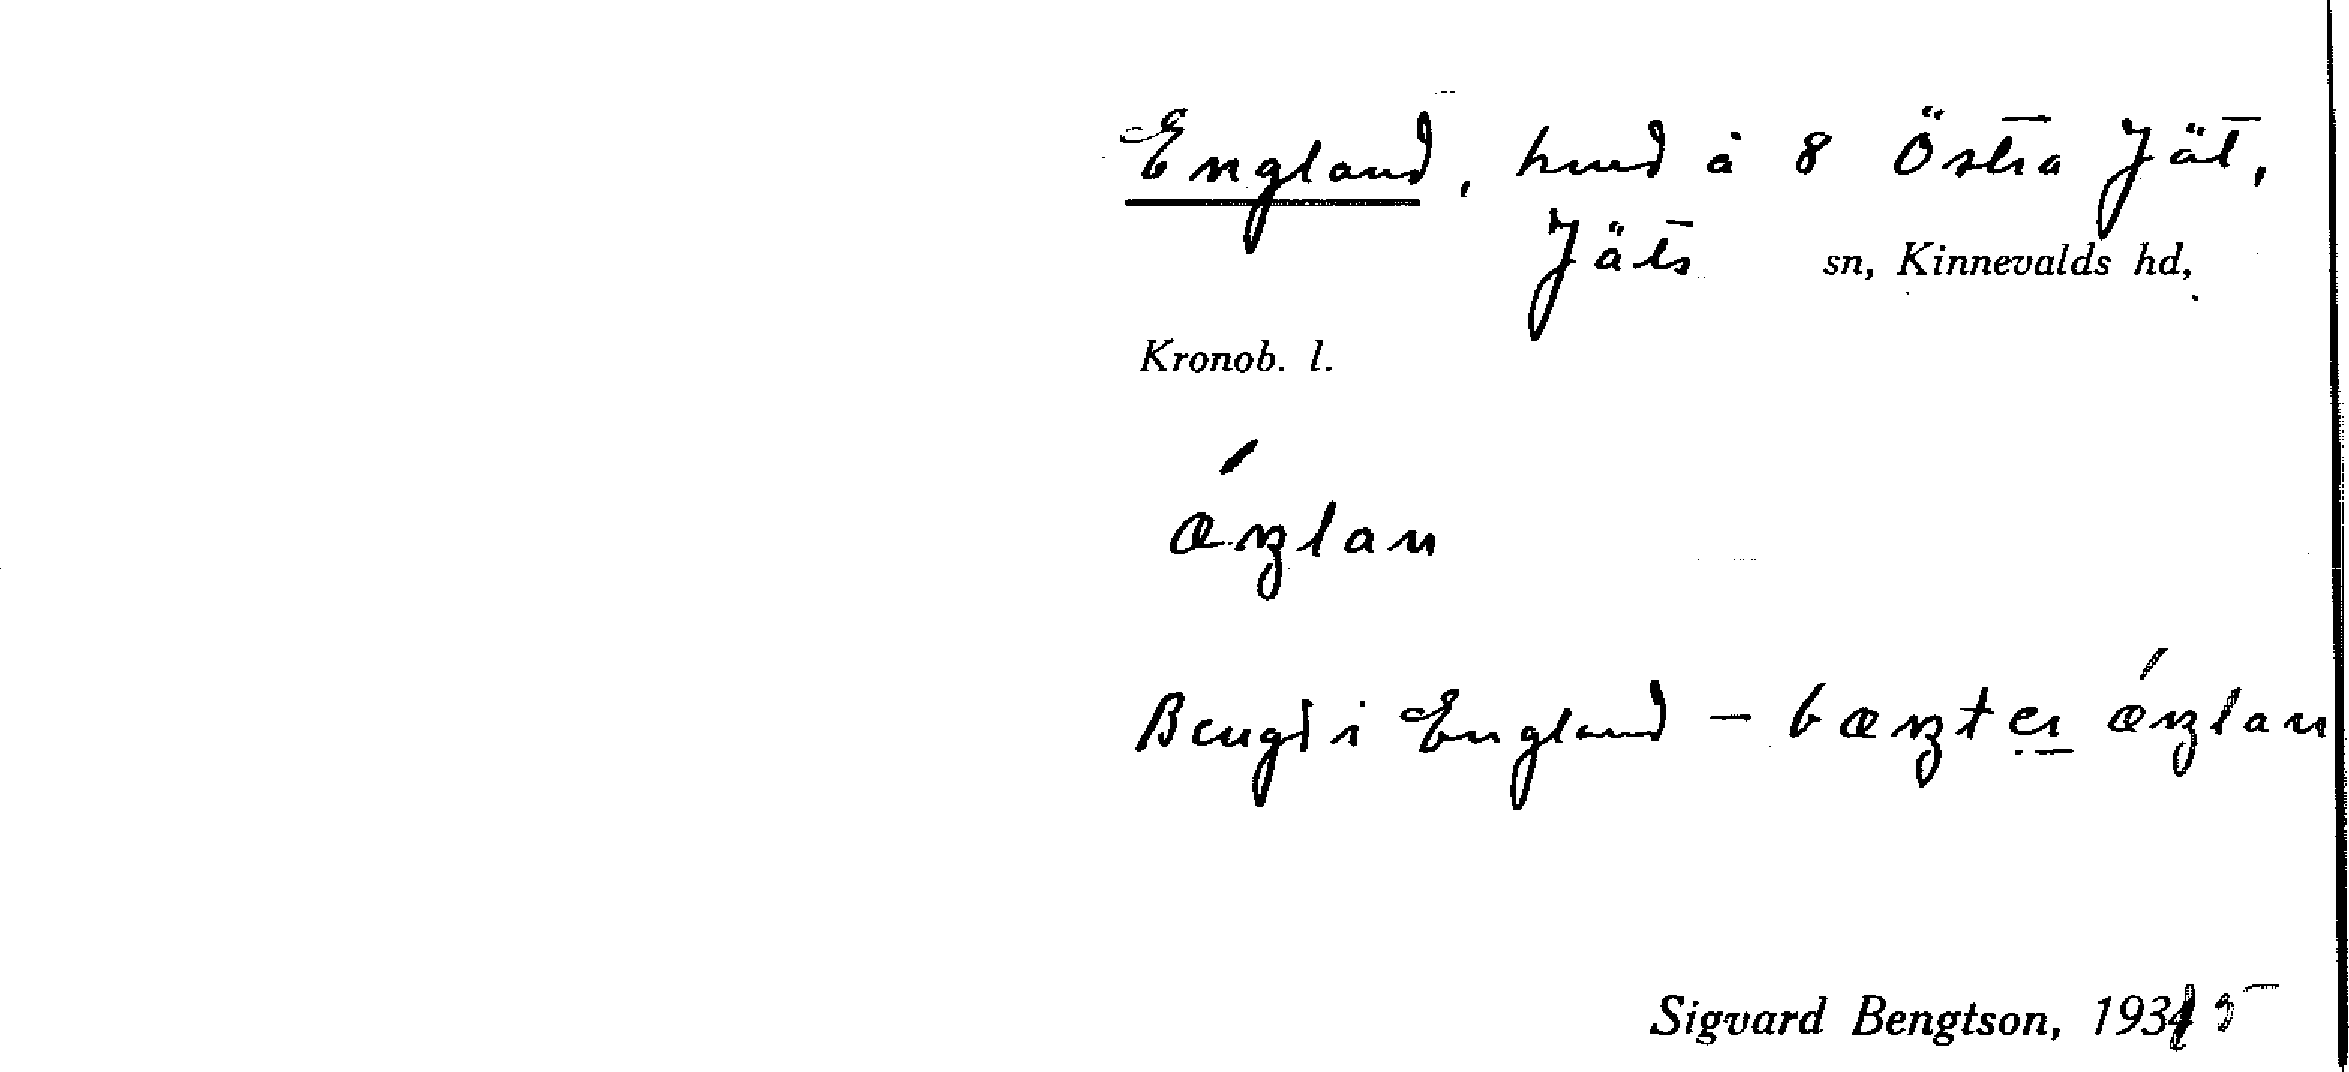 England, hmd å 8 Östra Jät,
Jäts sn, Kinnevalds hd,
Kronob. l.
ǽŋlan
Bengt i England – bæŋt ei ǽŋlan
Sigvard Bengtson, 1935